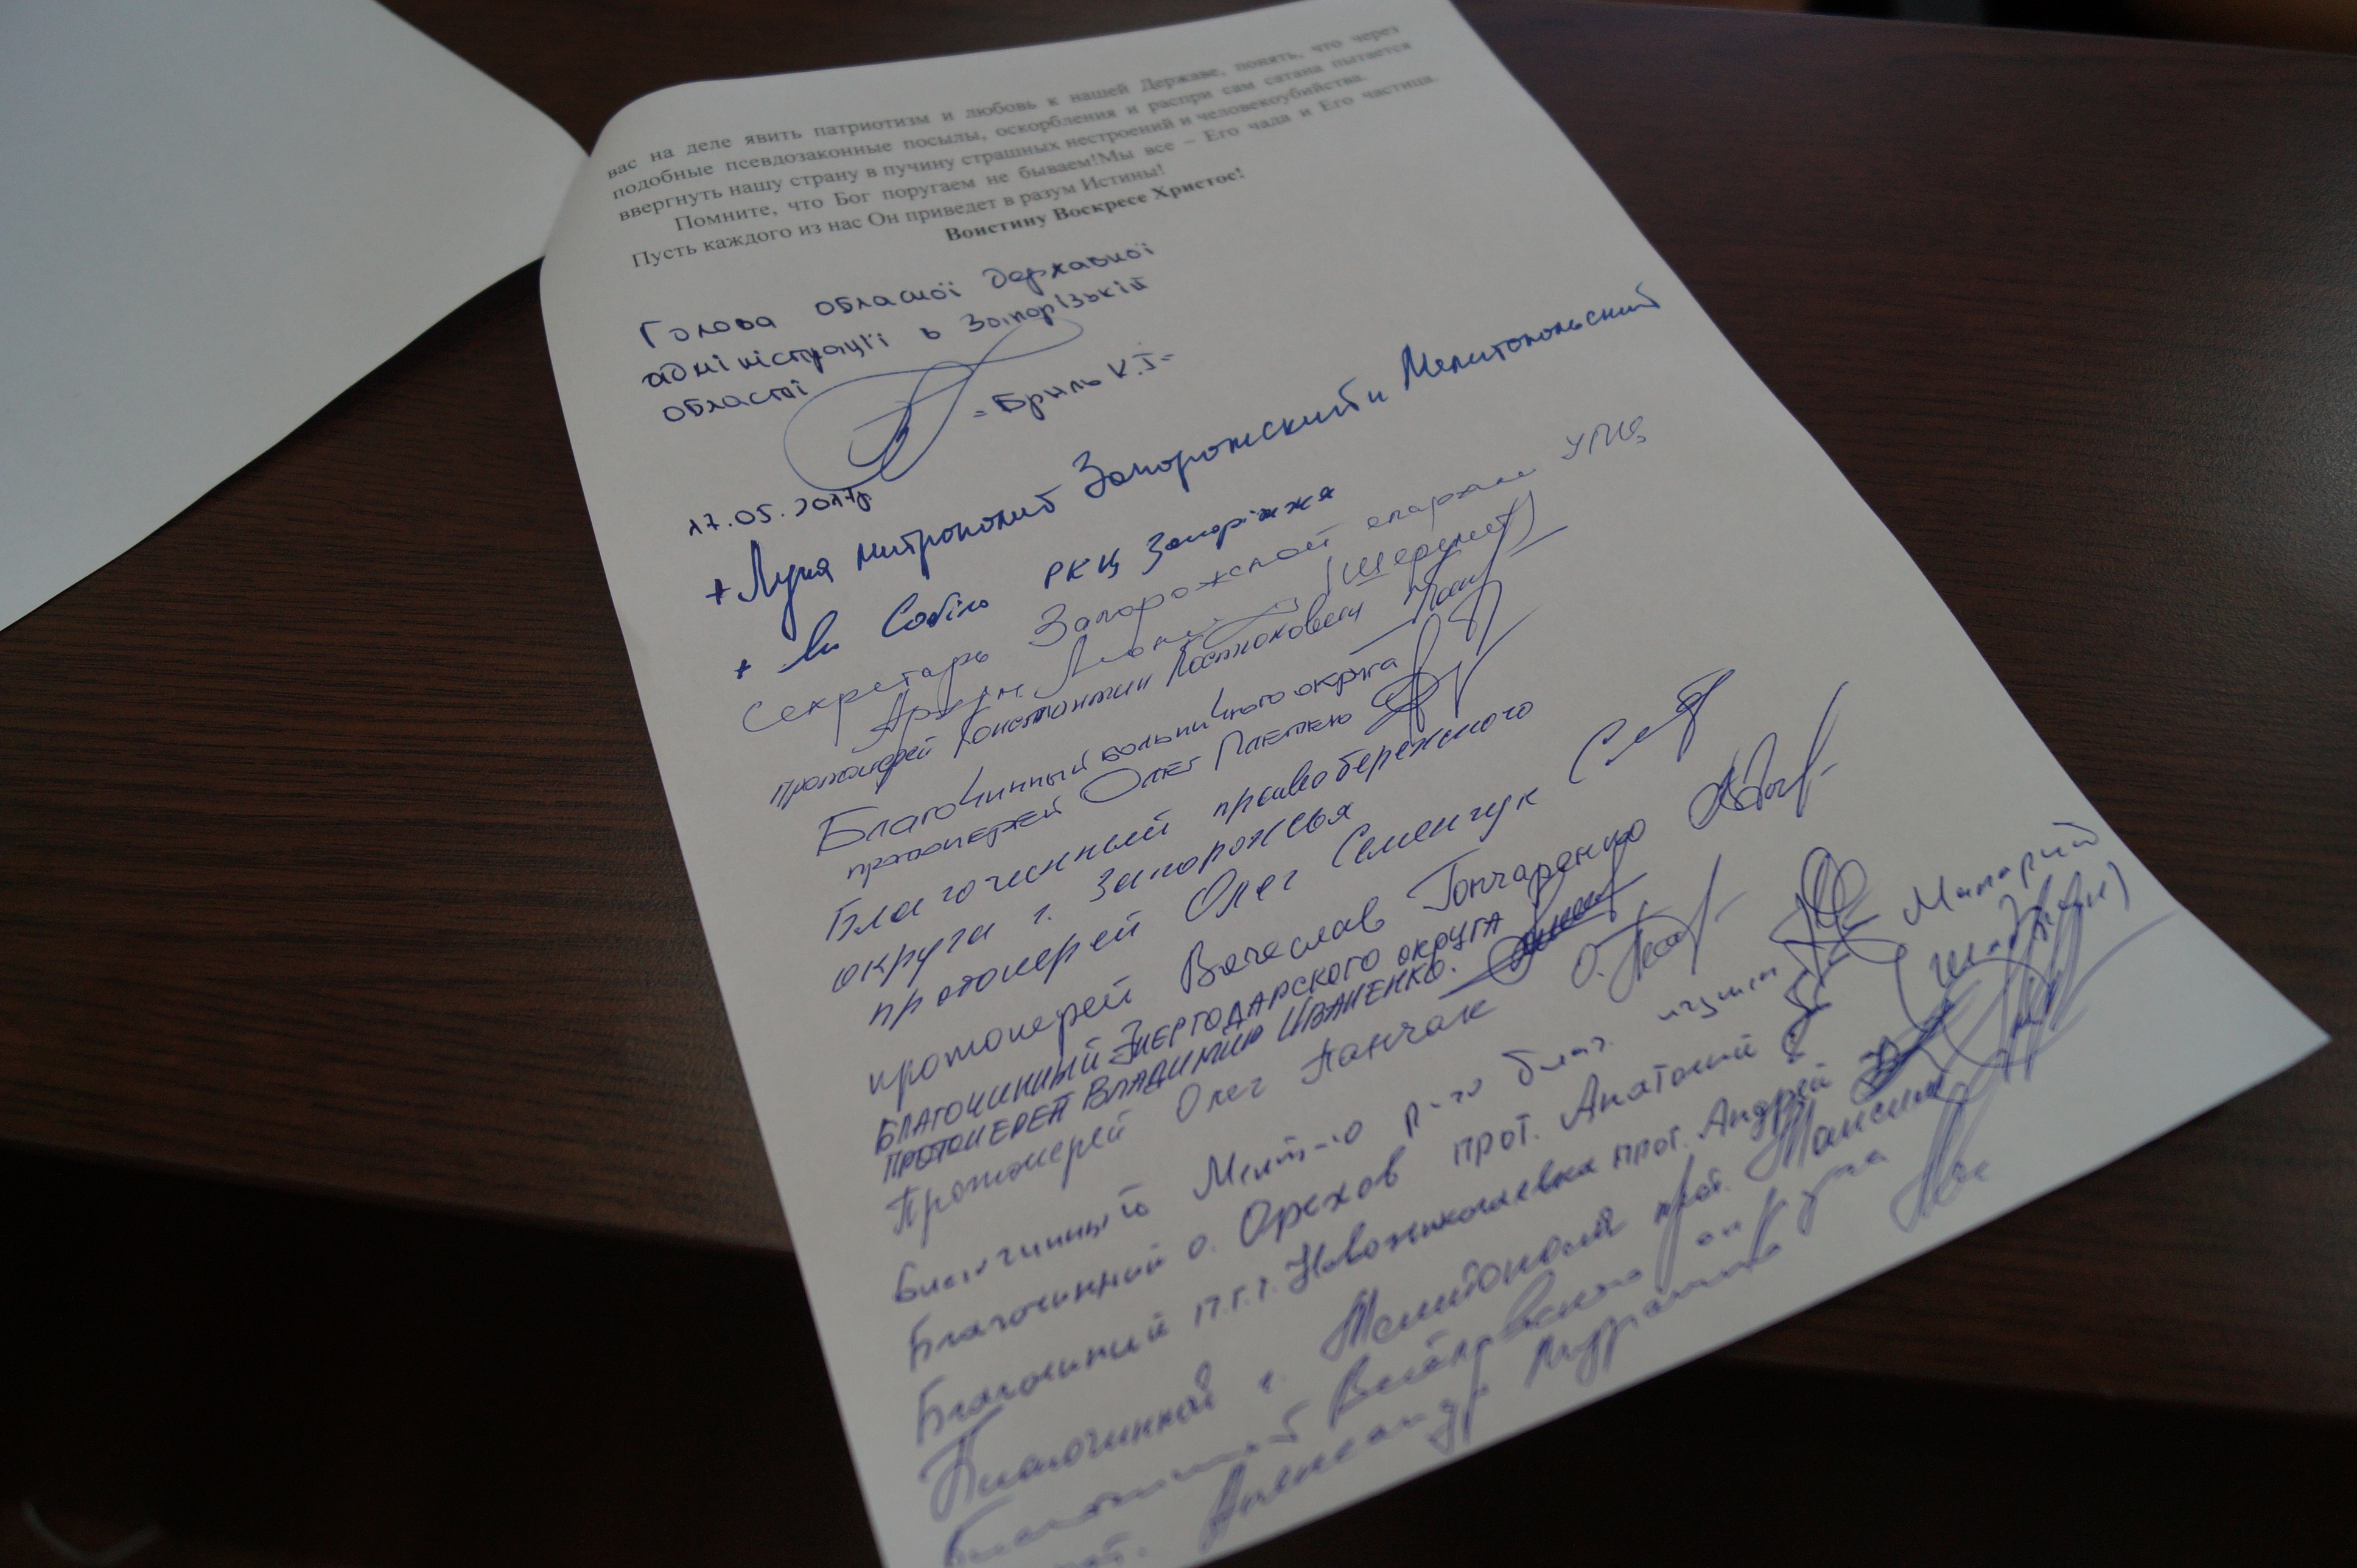 вас на деле явить патриотизм и любовь к нашей Державе, понять, что через
подобные псевдозаконные посылы, оскорбления и распри сам сатана пытается
ввергнуть нашу страну в пучину страшных нестроений и человекоубийства.
Помните, что Бог поругаем не бываем!Мы все – Его чада и Его частица.
Пусть каждого из нас Он приведет в разум Истины!
Воистину Воскресе Христос!
Голова обласної державної
адміністрації в Запорізькій
області
=Бриль К.І=
17.05.2017р.
+ Лука митрополит Запорожский и Мелитопольский
+ РКЦ Запоріжжя
Секретарь Запорожской епархии УПЦ
протоиерей Константин Костюкович
Благочинный больничного округа
протоиерей Олег
Благочинный правобережного
округа г. Запорожья
протоиерей Олег Семенчук
протоиерей Вячеслав Гончаренко
Благочинный Энергодарского округа
протоиерей Владимир Иваненко.
Протоиерей Олег Панчак
Благочинный игумен Макарий
Благочинный о. Орехов прот. Анатолий
Благочинный п.г.т. Новониколаевка прот. Андрей
Благочинный г. Мелитополя прот. Максим
Благочинный округа
Александр